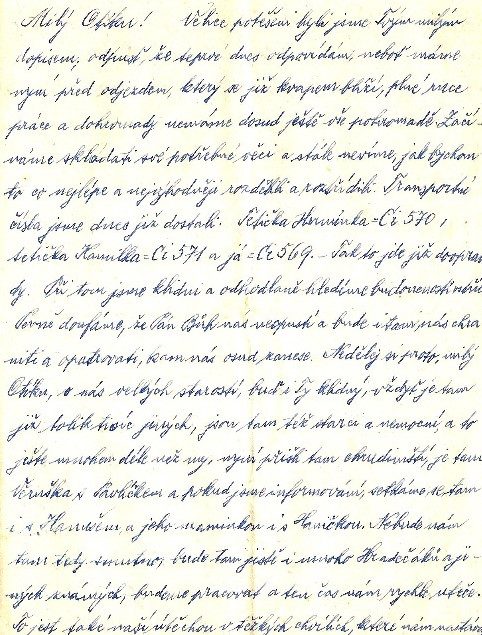 Milý Otíku! Velice potěšeni byli jsme Tvým milým
dopisem, odpusť, že teprve dnes odpovídám, neboť máme
nyní před odjezdem, který se již kvapem blíží, plné ruce
práce a dohromady nemáme dosud ještě vše pohromadě. Začí-
náme skládati své potřebné věci a stále nevíme, jak bychom
to co nejlépe a nejvýhodněji rozdělili a roztřídili. Transportní
čísla jsme dnes již dostali. Tetička Hermínka=Ci 570,
tetička Kamilka=Ci 571 a já=Ci 569. – Tak to jde již dooprav
dy. Při tom jsme klidni a odhodlaně hledíme budoucnosti vstříc
Pevně doufáme, že Pán Bůh nás neopustí a bude i tam nás chrá
niti a opatrovati, kam nás osud zanese. Nedělej si proto, milý
Otíku, o nás velkých starostí, buď i Ty klidný, vždyť je tam
již tolik tisíc jiných, jsou tam též starci a nemocní, a to
ještě mnohem déle než my, nyní přišli tam chrudimští, je tam
Věruška s Pavlíčkem a pokud jsme informováni, setkáme se tam
i s Hanušem, a jeho maminkou i s Haničkou. Nebude nám
tam tedy smutno, bude tam jistě i mnoho Hradečáků a ji-
ných známých, budeme pracovat a ten čas nám rychle uteče.
To jest také naší útěchou v těžkých chvílích, které nám nastávají